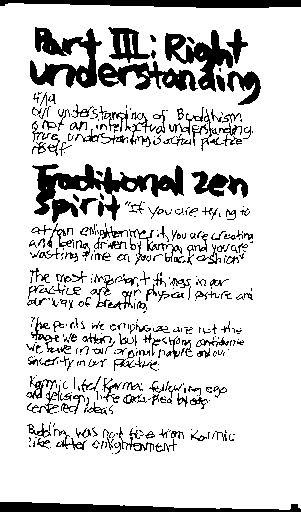 Part III: Right
understanding
4/19
our understanding of Buddhism
is not an intellectual understanding.
True understanding is actual practice
itself
Traditional Zen
Spirit "If you are trying to
attain enlightenment, you are creating
and being driven by karma, and you are
wasting time on your black cushion"
The most important things in our
practice are our physical posture and
our way of breathing
The points we emphasize are not the
stage we attain, but the strong confidence
we have in our original nature and our
sincerity in our practice.
Karmic life/Karma: following ego
and delusion, life by ego
centered ideas
Buddha was not free from Karmic
life after enlightenment